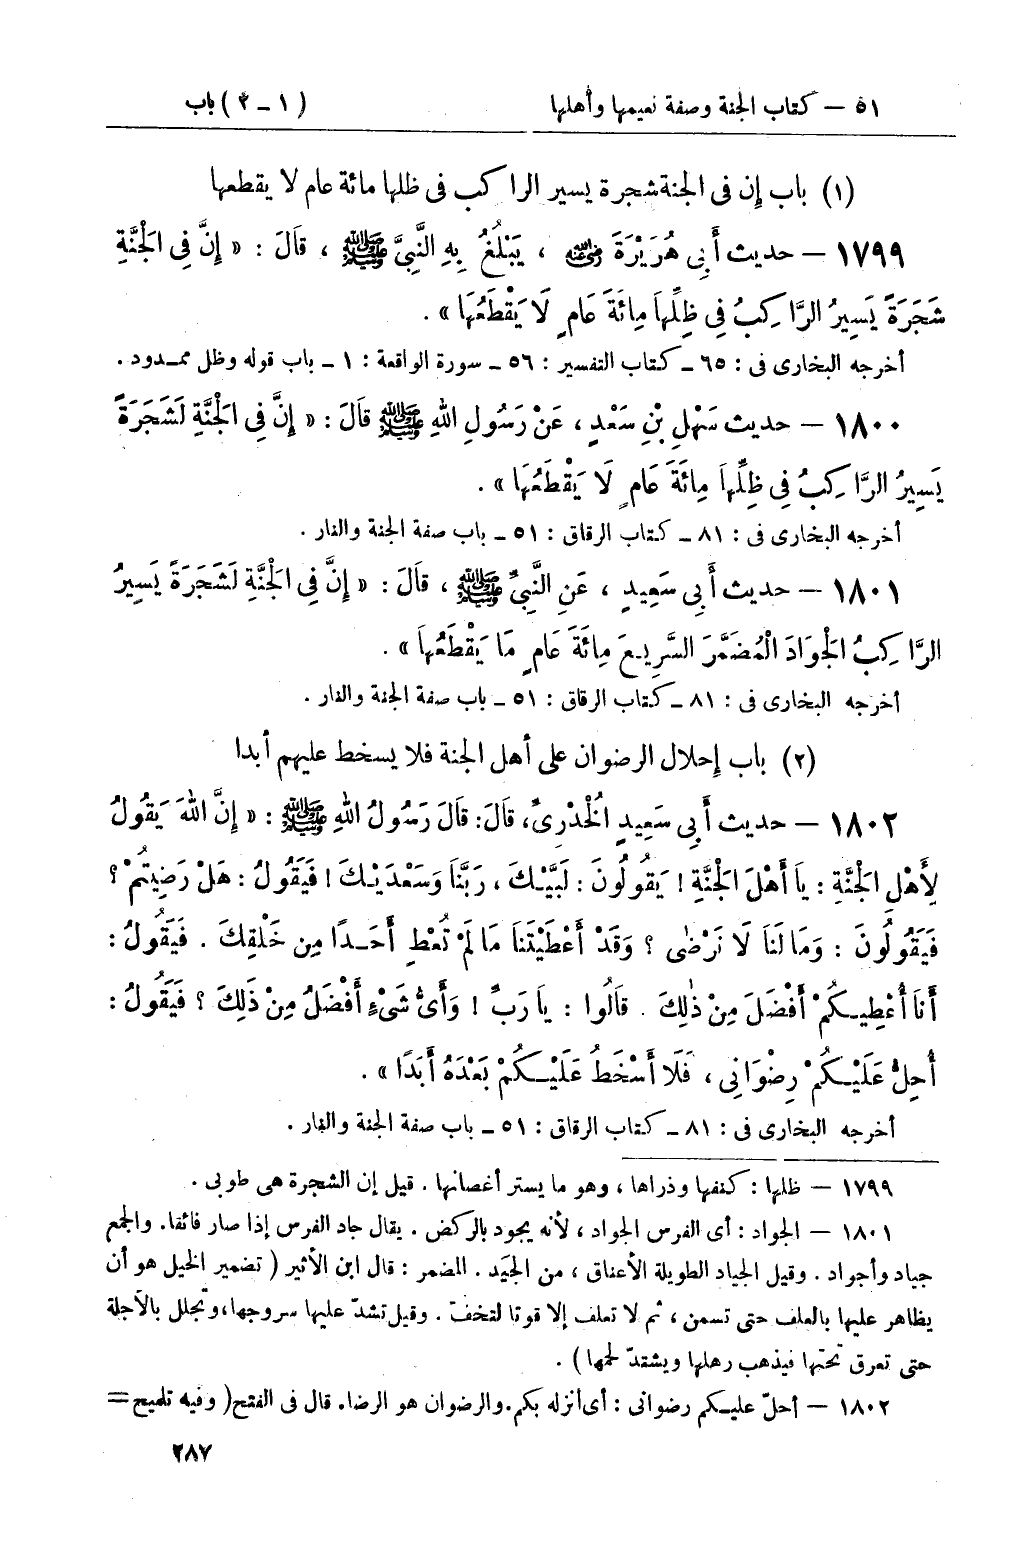 ٥١ – كتاب الجنة وصفة نعيمها وأهلها (١ – ٢) باب
(١) باب إن فى الجنة شجرة يسير الراكب فى ظلها مائة عام لا يقطعها
١٧٩٩ – حديث أَبِى هُرَيْرَةَ رضي الله عنه ، يَبْلُغُ بِهِ النَّبِىَّ ﷺ ، قَالَ : « إِنَّ فِى الْجَنَّةِ
شَجَرَةً يَسِيرُ الرَّاكِبُ فِى ظِلِّهَا مِائَةَ عَامٍ لَا يَقْطَعُهَا » .
أخرجه البخارى فى : ٦٥ – كتاب التفسير : ٥٦ – سورة الواقعة : ١ – باب قوله وظل ممـدود .
١٨٠٠ – حديث سَهْلِ بْنِ سَعْدٍ ، عَنْ رَسُولِ اللهِ ﷺ قَالَ : « إِنَّ فِى الْجَنَّةِ لَشَجَرَةً
يَسِيرُ الرَّاكِبُ فِى ظِلِّهَا مِائَةَ عَامٍ لَا يَقْطَعُهَا » .
أخرجه البخارى فى : ٨١ – كتاب الرقاق : ٥١ – باب صفة الجنة والنار .
١٨٠١ – حديث أَبِى سَعِيدٍ ، عَنِ النَّبِىِّ ﷺ ، قَالَ : « إِنَّ فِى الْجَنَّةِ لَشَجَرَةً يَسِيرُ
الرَّاكِبُ الْجَوَادَ الْمُضَمَّرَ السَّرِيعَ مِائَةَ عَامٍ مَا يَقْطَعُهَا » .
أخرجه البخارى فى : ٨١ – كتاب الرقاق : ٥١ – باب صفة الجنة والنار .
(٢) باب إحلال الرضوان على أهل الجنة فلا يسخط عليهم أبدا
١٨٠٢ – حديث أَبِى سَعِيدٍ الْخُدْرِىِّ، قَالَ: قَالَ رَسُولُ اللهِ ﷺ : « إِنَّ اللهَ يَقُولُ
لِأَهْلِ الْجَنَّةِ : يَا أَهْلَ الْجَنَّةِ ! يَقُولُونَ : لَبَّيْكَ ، رَبَّنَا وَسَعْدَيْكَ ! فَيَقُولُ : هَلْ رَضِيتُمْ ؟
فَيَقُولُونَ : وَمَا لَنَا لَا نَرْضٰى ؟ وَقَدْ أَعْطَيْتَنَا مَا لَمْ تُعْطِ أَحَـدًا مِن خَلْقِكَ . فَيَقُولُ :
أَنَا أُعْطِيكُمْ أَفْضَلَ مِنْ ذٰلِكَ . قَالُوا : يَا رَبِّ ! وَأَىُّ شَىْءٍ أَفْضَلُ مِنْ ذَلِكَ ؟ فَيَقُولُ :
أُحِلُّ عَلَيْكُمْ رِضْوَانِى ، فَلَا أَسْخَطُ عَلَيْكُمْ بَعْدَهُ أَبَدًا » .
أخرجه البخارى فى : ٨١ – كتاب الرقاق : ٥١ – باب صفة الجنة والنار .
١٧٩٩ – ظلها : كنفها وذراها ، وهو ما يستر أغصانها . قيل إن الشجرة هى طوبى .
١٨٠١ – الجواد : أى الفرس الجواد ، لأنه يجود بالركض . يقال جاد الفرس إذا صار فائقا. والجمع
جياد وأجواد . وقيل الجياد الطويلة الأعناق ، من الجيَد . المضمر : قال ابن الأثير ( تضمير الخيل هو أن
يظاهر عليها بالعلف حتى تسمن ، ثم لا تعلف إلا قوتا لتخفّ . وقيل تشدّ عليها سروجها،وتجلل بالأجلة
حتى تعرق تحتها فيذهب رهلها ويشتدّ لحمها ) .
١٨٠٢ – أحلّ عليكم رضوانى : أى أنزله بكم.والرضوان هو الرضا. قال فى الفتح( وفيه تلميح =
٢٨٧